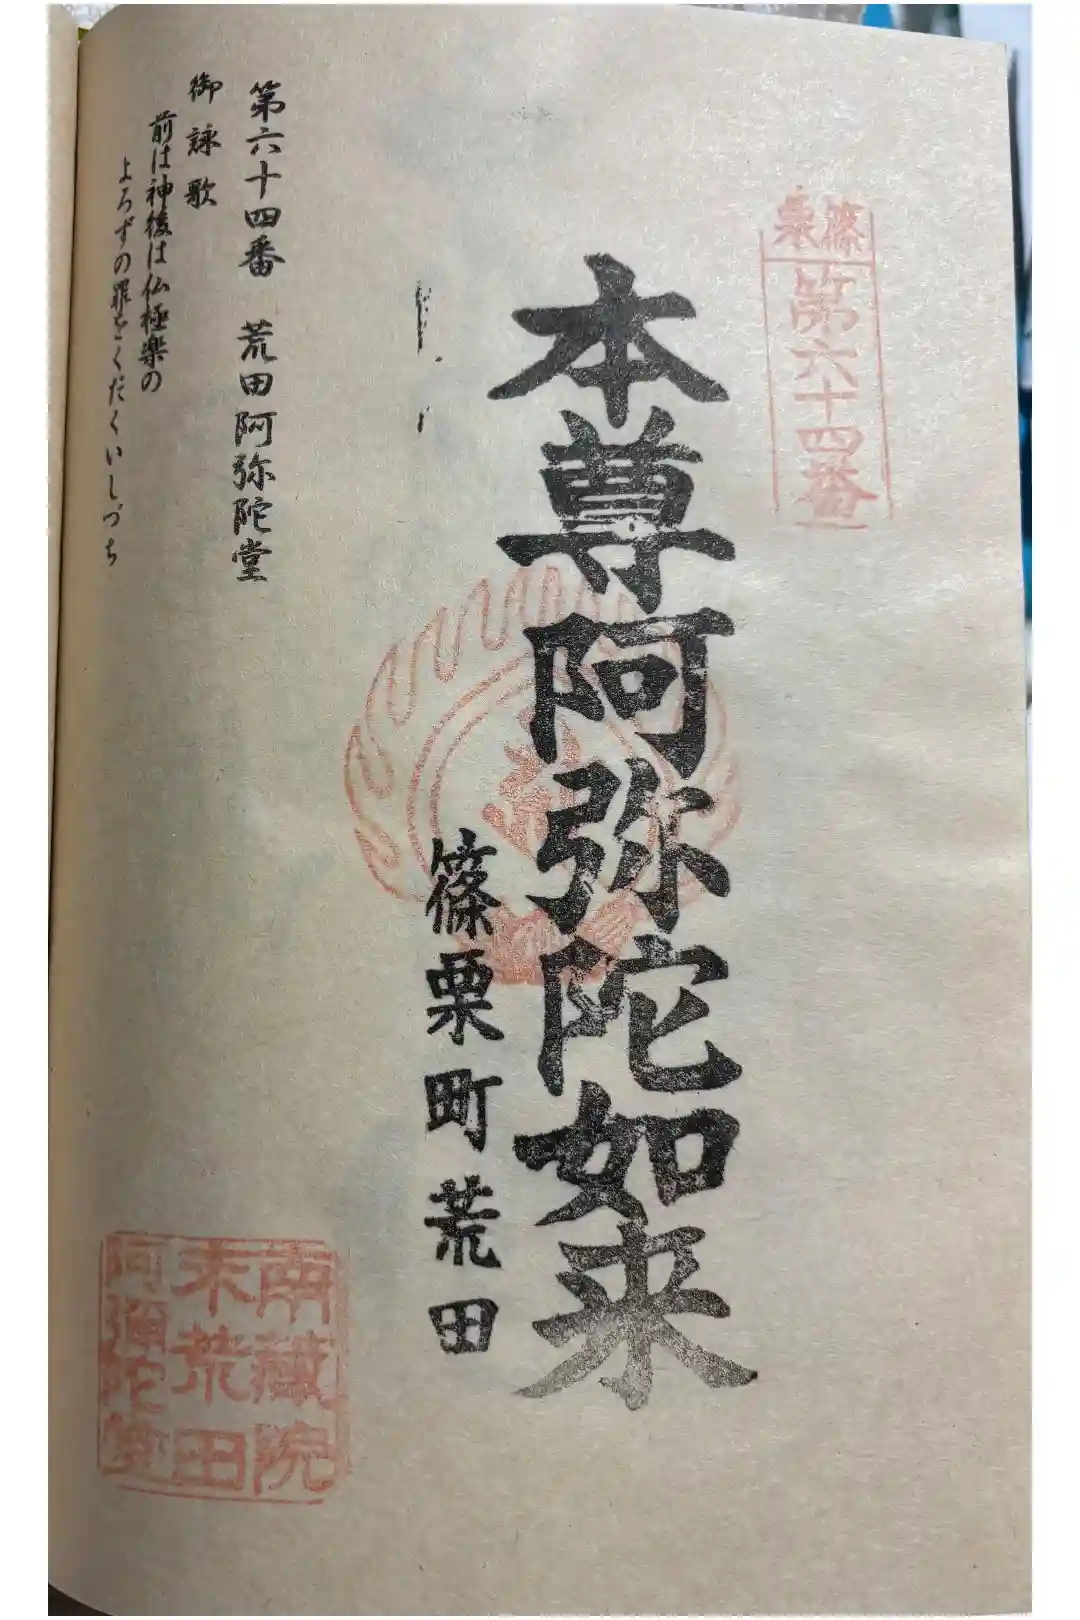 篠栗
第六十四番
本尊阿弥陀如来
篠栗町荒田
南蔵院
末荒田
阿弥陀堂
第六十四番 荒田阿弥陀堂
御詠歌
前は神後は仏極楽の
よろずの罪をくだくいしづち